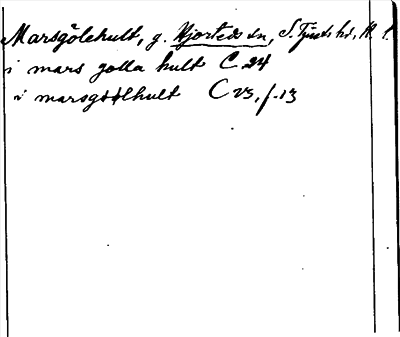 Marsgölehult, g. Hjorteds sn, S. Tjusts hd, K. l.
i mars golla hult C 24
i marsgöölhult C 25, f. 13